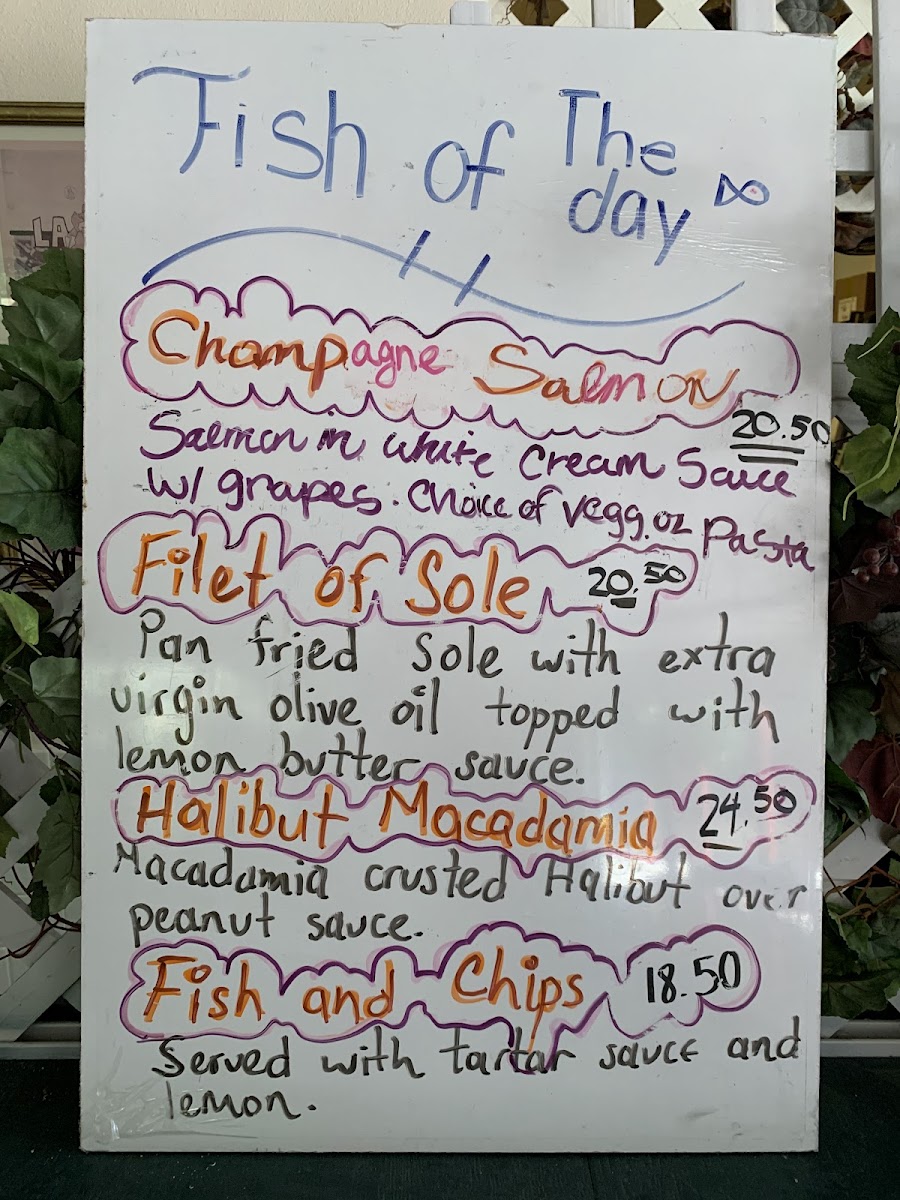 Fish of The day
Champagne Salmon
20.50
Salmon in white Cream Sauce
w/ grapes. Choice of vegg. or Pasta
Filet of Sole 20.50
Pan fried Sole with extra
virgin olive oil topped with
lemon butter sauce.
Halibut Macadamia 24.50
Macadamia crusted Halibut over
peanut sauce.
Fish and Chips 18.50
Served with tartar sauce and
lemon.
LA